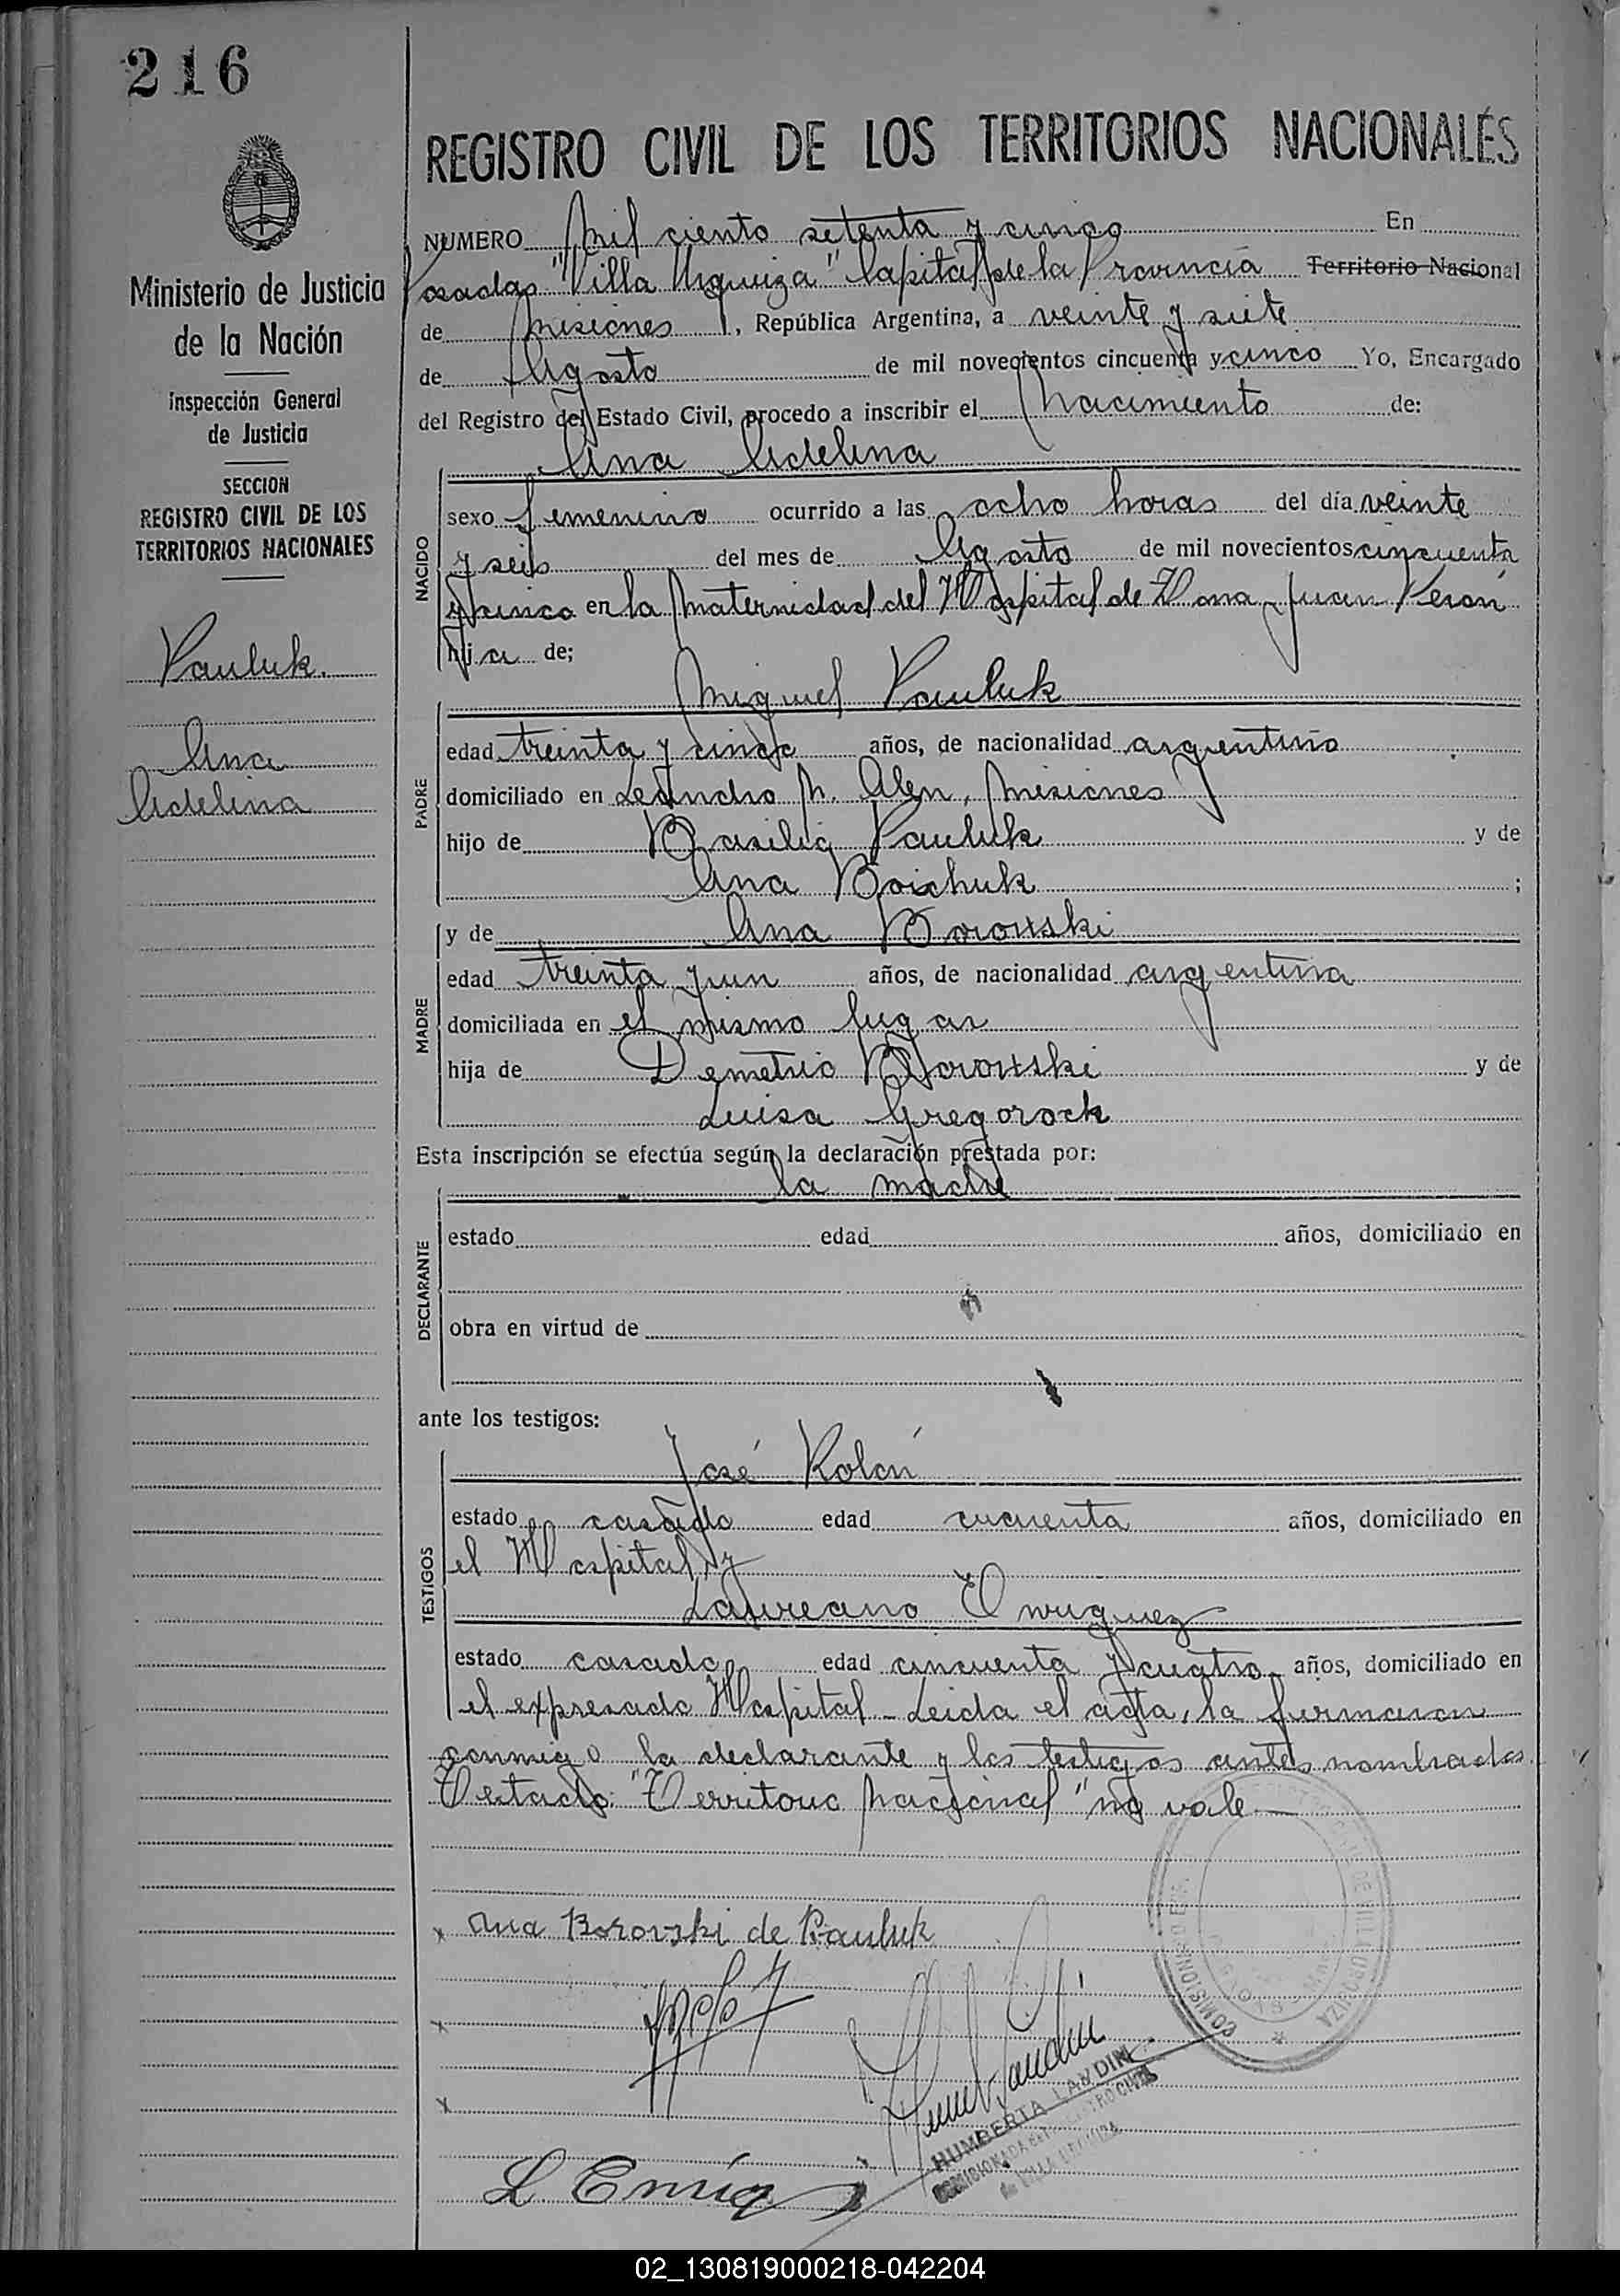 216
REGISTRO CIVIL DE LOS TERRITORIOS NACIONALES
Ministerio de Justicia
de la Nación
Inspección General
de Justicia
SECCION
REGISTRO CIVIL DE LOS
TERRITORIOS NACIONALES
Pauluk.
Ana
Adelina
NUMERO Mil ciento setenta y cinco En
Posadas "Villa Urquiza" Capital de la Provincia Territorio Nacional
de Misiones, República Argentina, a veinte y siete
de Agosto de mil novecientos cincuenta y cinco Yo, Encargado
del Registro del Estado Civil, procedo a inscribir el Nacimiento de:
Ana Adelina
NACIDO
sexo femenino ocurrido a las ocho horas del día veinte
y seis del mes de Agosto de mil novecientos cincuenta
y cinco en la Maternidad del Hospital de Zona Juan Perón
hija de;
Miguel Pauluk
PADRE
edad treinta y cinco años, de nacionalidad argentino
domiciliado en Leandro N. Alen, Misiones
hijo de Basilio Pauluk y de
Ana Boichuk ;
y de Ana Borowski
MADRE
edad treinta y un años, de nacionalidad argentina
domiciliada en el mismo lugar
hija de Demetrio Borowski y de
Luisa Gregorock
Esta inscripción se efectúa según la declaración prestada por:
la madre
DECLARANTE
estado edad años, domiciliado en
obra en virtud de
ante los testigos:
José Rolón
TESTIGOS
estado casado edad cuarenta años, domiciliado en
el Hospital y
Laureano Enriquez
estado casado edad cincuenta y cuatro años, domiciliado en
el expresado Hospital - Leida el acta, la firmaron
conmigo la declarante y los testigos antes nombrados.
Testado: "Territorio Nacional" no vale.—
x Ana Borovski de Pauluk
x
x
HUMBERTA LANDINI
L. Enriq
COMISIONADO
VILLA URQUIZA
02_130819000218-042204